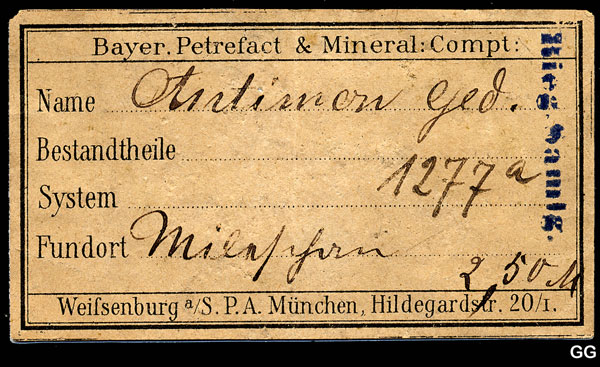 Bayer. Petrefact & Mineral: Compt:
Name Antimon ged.
Bestandtheile
System 1277a
Fundort Mileschau
2,50 M
Weifsenburg a/S. P.A. München, Hildegardstr. 20/1.
Samlg.
GG